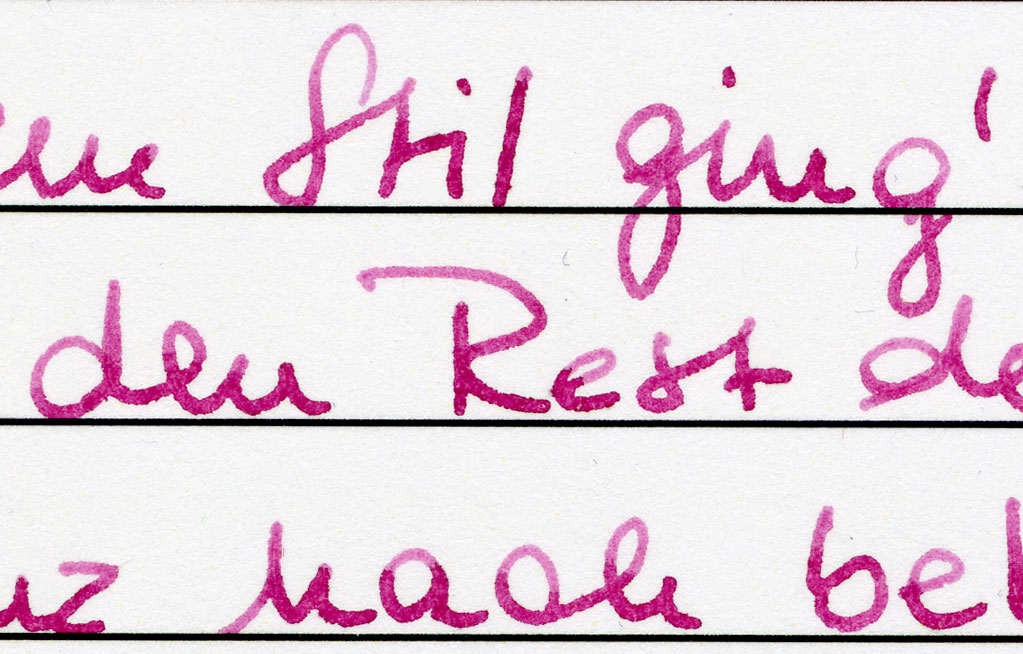 Stil ging'
den Rest de
nz nach be